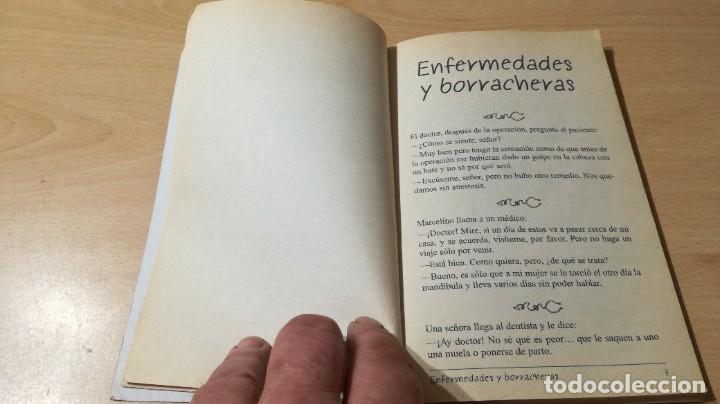 Enfermedades
y borracheras
El doctor, después de la operación, pregunta al paciente:
—¿Cómo se siente, señor?
—Muy bien pero tengo la sensación como de que antes de
la operación me hubieran dado un golpe en la cabeza con
un bate y no sé por qué será.
—Excúseme, señor, pero no hubo otro remedio. Nos que-
damos sin anestesia.
Marcelino llama a un médico:
—¡Doctor! Mire, si un día de estos va a pasar cerca de mi
casa, y se acuerda, visíteme, por favor. Pero no haga un
viaje sólo por venir.
—Está bien. Como quiera, pero, ¿de qué se trata?
—Bueno, es sólo que a mi mujer se le torció el otro día la
mandíbula y lleva varios días sin poder hablar.
Una señora llega al dentista y le dice:
—¡Ay doctor! No sé qué es peor... que le saquen a uno
una muela o ponerse de parto.
Enfermedades y borracheras 7
todocoleccion.net